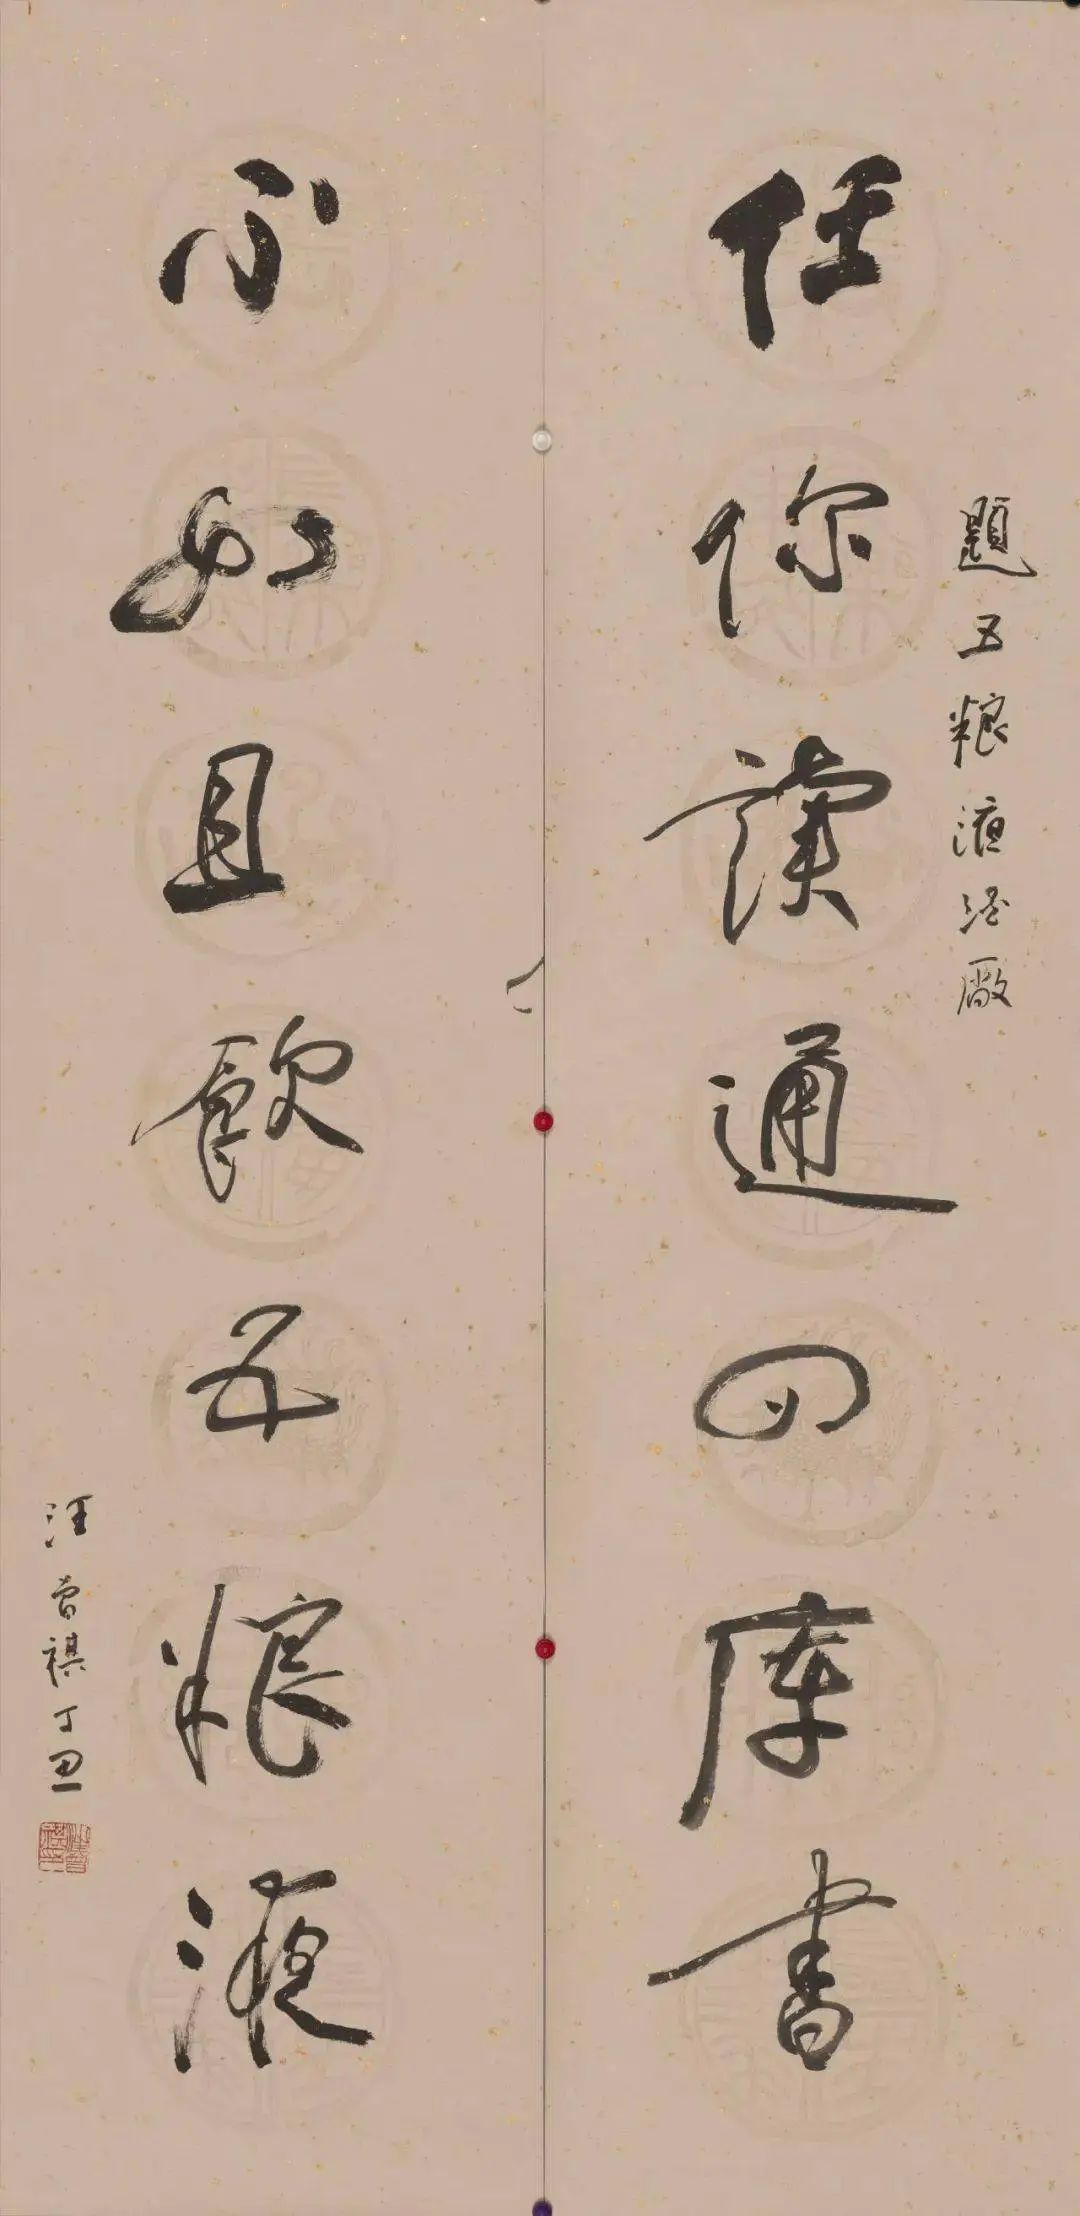 題五粮液酒廠
任你讀通四庫書
不如且飲五粮液
汪曾祺丁丑